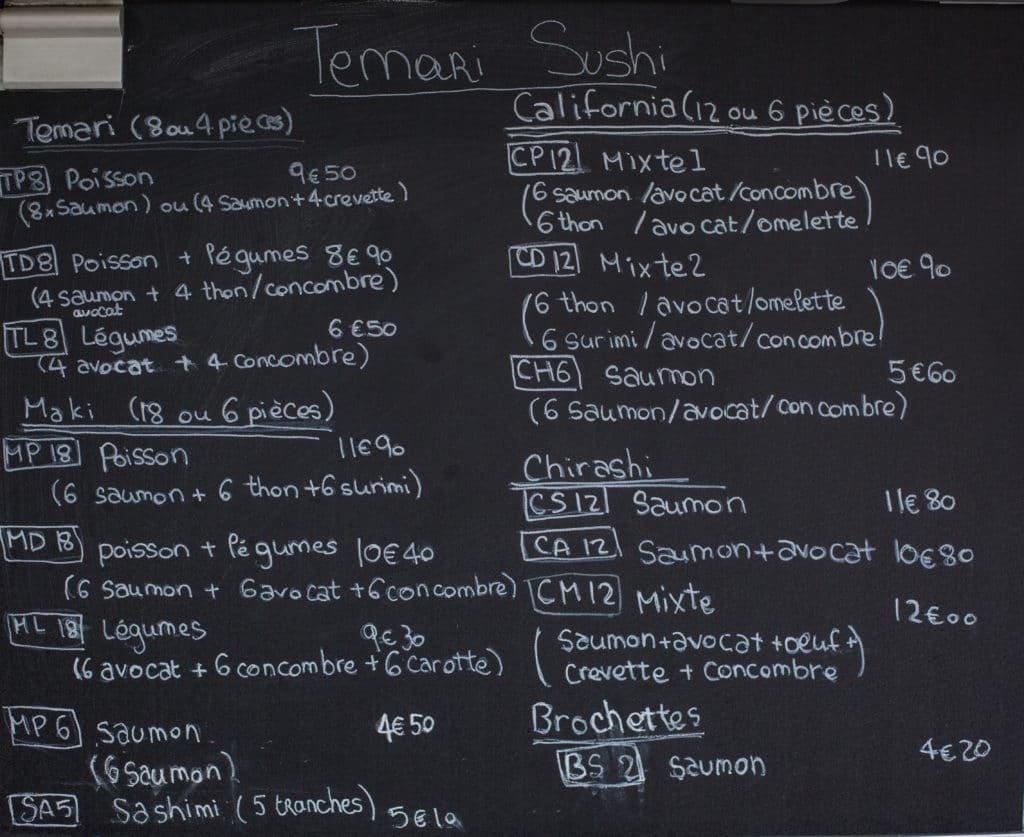 Temari Sushi
Temari (8 ou 4 pièces)
TP8 Poisson 9€50
(8x Saumon) ou (4 Saumon + 4 crevette)
TD8 Poisson + légumes 8€90
(4 saumon + 4 thon/concombre)
avocat
TL8 Légumes 6€50
(4 avocat + 4 concombre)
Maki (18 ou 6 pièces)
MP18 Poisson 11€90
(6 saumon + 6 thon +6 surimi)
MD18 poisson + légumes 10€40
(6 saumon + 6 avocat +6 concombre)
ML18 Légumes 9€30
(6 avocat + 6 concombre + 6 carotte)
MP6 Saumon 4€50
(6 saumon)
SA5 Sashimi (5 tranches)
California (12 ou 6 pièces)
CP12 Mixte1 11€90
(6 saumon /avocat /concombre)
6 thon /avocat/omelette
CD12 Mixte2 10€90
(6 thon /avocat/omelette)
6 surimi/avocat/concombre
CH6 Saumon 5€60
(6 Saumon/avocat/concombre)
Chirashi
CS12 Saumon 11€80
CA12 Saumon+avocat 10€80
CM12 Mixte 12€00
(Saumon+avocat+oeuf+
Crevette + Concombre)
Brochettes
BS2 Saumon 4€20